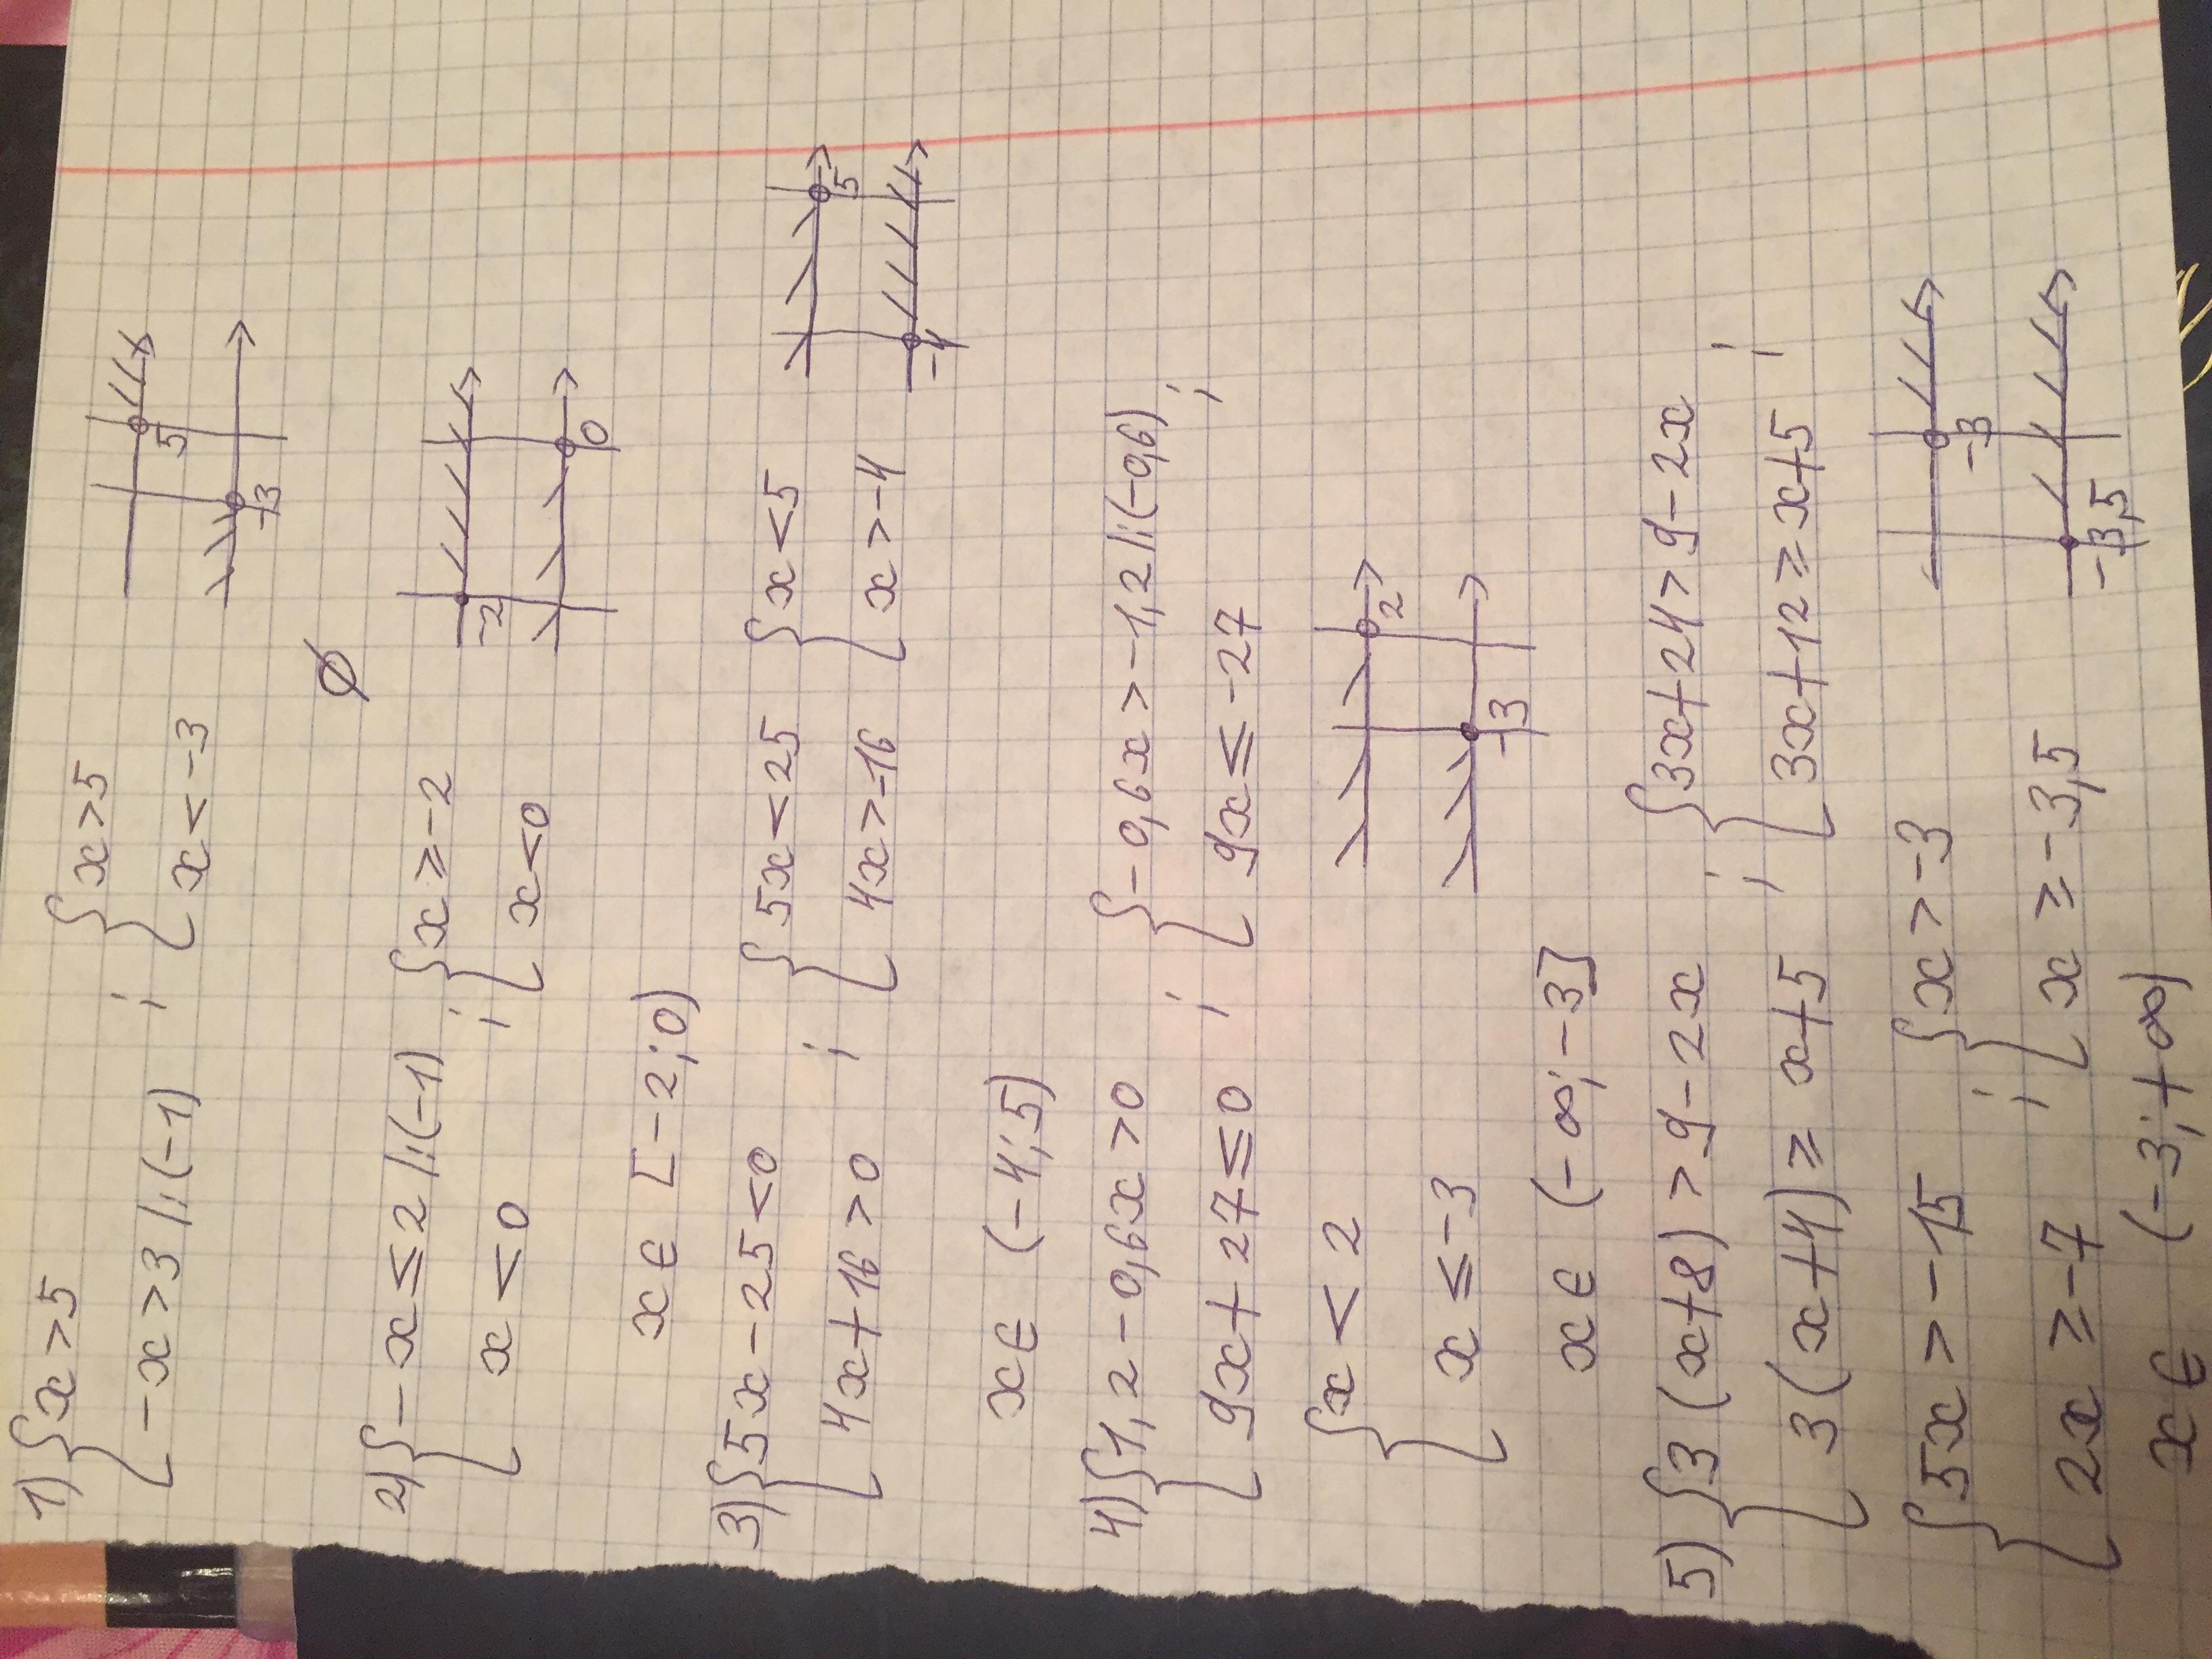 1) { x > 5
-x > 3 |:(-1) ; { x > 5
x < -3
5
-3
Ø
2) { -x ≤ 2 |:(-1)
x < 0 ; { x ≥ -2
x < 0
-2
0
x ∈ [-2; 0)
3) { 5x - 25 < 0
4x + 16 > 0 ; { 5x < 25
4x > -16
{ x < 5
x > -4
5
-4
x ∈ (-4; 5)
4) { 1,2 - 0,6x > 0
9x + 27 ≤ 0 ; { -0,6x > -1,2 |:(-0,6)
9x ≤ -27 ;
{ x < 2
x ≤ -3
2
-3
x ∈ (-∞; -3]
5) { 3(x+8) > 9 - 2x
3(x+4) ≥ x+5 ; { 3x+24 > 9-2x
3x+12 ≥ x+5 ;
{ 5x > -15
2x ≥ -7 ; { x > -3
x ≥ -3,5
-3
-3,5
x ∈ (-3; +∞)